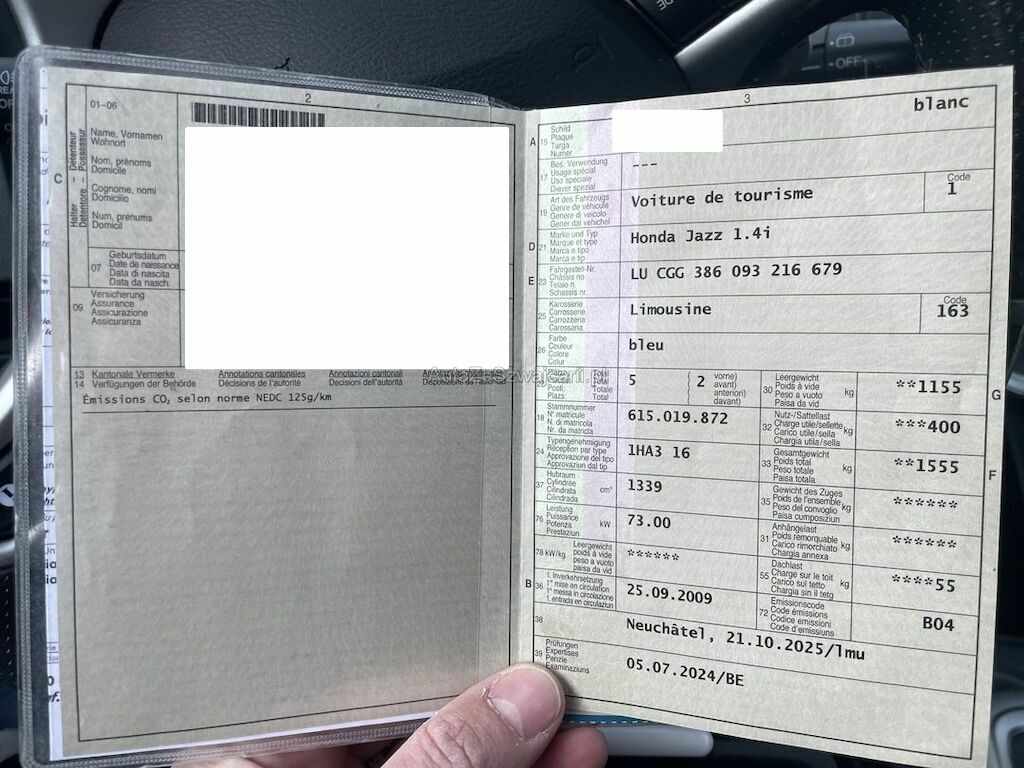 OFF
2
01-06
Name, Vornamen
Wohnort
Nom, prénoms
Domicile
Cognome, nomi
Domicilio
Num, prenums
Domicil
C
Halter – Détenteur
Detentore – Possessur
07
Geburtsdatum
Date de naissance
Data di nascita
Data da nasch.
09
Versicherung
Assurance
Assicurazione
Assicuranza
13 Kantonale Vermerke Annotations cantonales Annotazioni cantonali
14 Verfügungen der Behörde Décisions de l'autorité Decisioni dell'autorità
Émissions CO₂ selon norme NEDC 125g/km
3
blanc
A 15
Schild
Plaque
Targa
Numer
17
Bes. Verwendung
Usage spécial
Uso speciale
Diever spezial
---
19
Art des Fahrzeugs
Genre de véhicule
Genere di veicolo
Gener dal vehichel
Voiture de tourisme
Code
1
D 21
Marke und Typ
Marque et type
Marca e tipo
Marca e tip
Honda Jazz 1.4i
E 23
Fahrgestell-Nr.
Châssis no
Telaio n.
Schassis nr.
LU CGG 386 093 216 679
25
Karosserie
Carrosserie
Carrozzeria
Carossaria
Limousine
Code
163
26
Farbe
Couleur
Colore
Calur
bleu
27
Plätze Total
Places Total
Posti: Totale
Plazs: Total
5
( 2 vorne)
avant)
anteriori)
davant)
30
Leergewicht
Poids à vide
Peso a vuoto
Paisa da vid
kg
**1155
G
18
Stammnummer
N° matricule
N. di matricola
Nr. da matricla
615.019.872
32
Nutz-/Sattellast
Charge utile/sellette
Carico utile/sella
Chargia utila/sella
kg
***400
24
Typengenehmigung
Réception par type
Approvazione del tipo
Approvaziun dal tip
1HA3 16
33
Gesamtgewicht
Poids total
Peso totale
Paisa totala
kg
**1555
F
37
Hubraum
Cylindrée
Cilindrata
Cilindrada
cm³
1339
35
Gewicht des Zuges
Poids de l'ensemble
Peso del convoglio
Paisa cumposiziun
kg
******
76
Leistung
Puissance
Potenza
Prestaziun
kW
73.00
31
Anhängelast
Poids remorquable
Carico rimorchiato
Chargia annexa
kg
******
78 kW/kg
Leergewicht
poids à vide
peso a vuoto
paisa da vid
******
55
Dachlast
Charge sur le toit
Carico sul tetto
Chargia sin il tetg
kg
****55
B 36
1. Inverkehrsetzung
1re mise en circulation
1a messa in circolazione
1. entrada en circulaziun
25.09.2009
72
Emissionscode
Code émissions
Codice emissioni
Code d'emissiuns
B04
38
Neuchâtel, 21.10.2025/lmu
39
Prüfungen
Expertises
Perizie
Examinaziuns
05.07.2024/BE